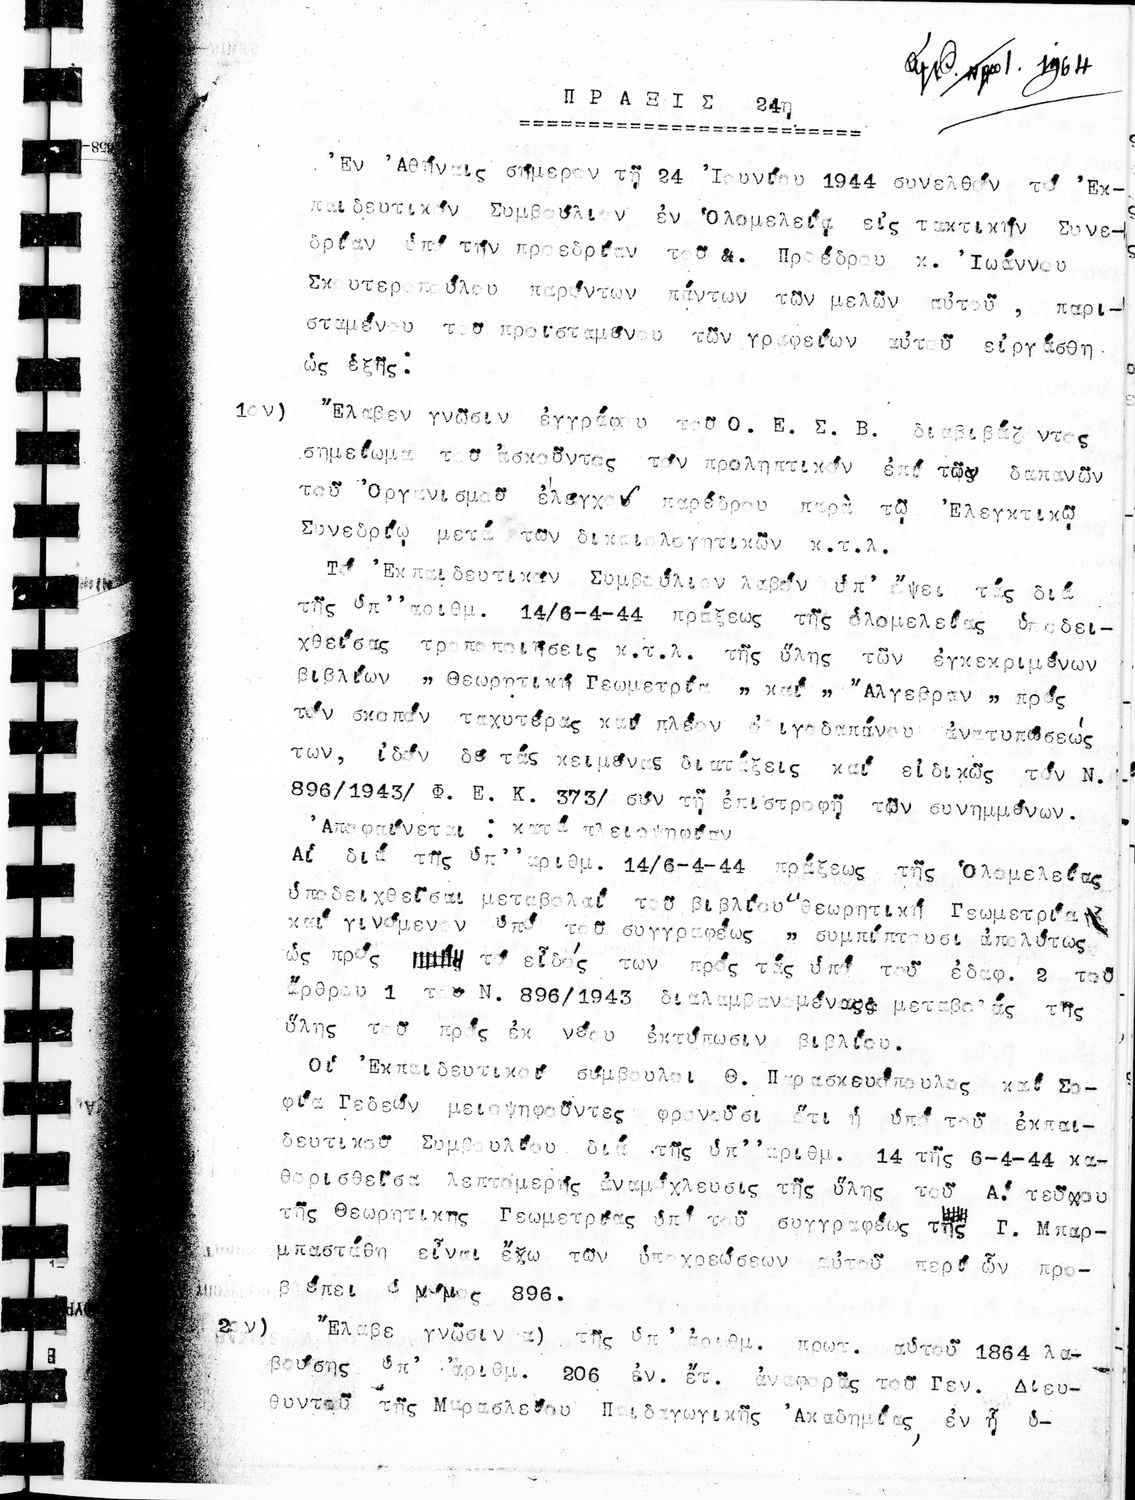 ΠΡΑΞΙΣ 24η
Ἐν Ἀθήναις σήμερον τῇ 24 Ἰουνίου 1944 συνελθόν τό Ἐκ-
παιδευτικόν Συμβούλιον ἐν Ὁλομελείᾳ εἰς τακτικήν Συνε-
δρίαν ὑπό τήν προεδρίαν τοῦ &. Προέδρου κ. Ἰωάννου
Σκουτεροπούλου παρόντων πάντων τῶν μελῶν αὐτοῦ , παρι-
σταμένου του προισταμένου τῶν γραφείων αὐτοῦ εἰργάσθη
ὡς ἑξῆς:
1ον) Ἔλαβεν γνῶσιν ἐγγράφου τοῦ Ο. Ε. Σ. Β. διαβιβάζοντος
σημείωμα τοῦ ἀσκοῦντος τόν προληπτικόν ἐπί τῶν δαπανῶν
τοῦ Ὀργανισμοῦ ἐλεγχον παρέδρου παρὰ τῷ Ἐλεγκτικῷ
Συνεδρίῳ μετά τῶν δικαιολογητικῶν κ.τ.λ.
Τό Ἐκπαιδευτικόν Συμβούλιον λαβόν ὑπ' ὄψει τάς διά
τῆς ὑπ''αριθμ. 14/6-4-44 πράξεως τῆς ὁλομελείας ὑποδει-
χθείσας τροποποιήσεις κ.τ.λ. τῆς ὕλης τῶν ἐγκεκριμένων
βιβλίων " Θεωρητική Γεωμετρία " καί " Ἄλγεβραν " πρός
τόν σκοπόν ταχυτέρας καί πλέον ὀλιγοδαπάνου ἀνατυπώσεώς
των, ἰδόν δέ τάς κειμένας διατάξεις καί εἰδικῶς τόν Ν.
896/1943/ Φ. Ε. Κ. 373/ σύν τῇ ἐπιστροφῇ τῶν συνημμένων.
Ἀποφαίνεται : κατά πλειοψηφίαν
Αἱ διά τῆς ὑπ''αριθμ. 14/6-4-44 πράξεως τῆς Ὁλομελείας
ὑποδειχθεῖσαι μεταβολαί τοῦ βιβλίου "θεωρητική Γεωμετρία
καί γινόμενον ὑπό τοῦ συγγραφέως " συμπίπτουσι ἀπολύτως
ὡς πρός τό εἶδός των πρός τάς ὑπό τοῦ ἐδαφ. 2 τοῦ
ἄρθρου 1 του Ν. 896/1943 διαλαμβανομένας μεταβολάς τῆς
ὕλης τοῦ πρός ἐκ νέου ἐκτύπωσιν βιβλίου.
Οἱ Ἐκπαιδευτικοί σύμβουλοι Θ. Παρασκευόπουλος καί Σο-
φία Γεδεών μειοψηφοῦντες φρονοῦσι ὅτι ἡ ὑπό τοῦ ἐκπαι-
δευτικοῦ Συμβουλίου διά τῆς ὑπ''αριθμ. 14 τῆς 6-4-44 κα-
θορισθεῖσα λεπτομερής ἀναμόχλευσις τῆς ὕλης τοῦ Α! τεῦχου
τῆς Θεωρητικης Γεωμετρίας ὑπό τοῦ συγγραφέως τῆς Γ. Μπαρ-
μπαστάθη εἶναι ἔξω τῶν ὑποχρεώσεων αὐτοῦ περί ὧν προ-
βλέπει ὁ Νόμος 896.
2ον) Ἔλαβε γνῶσιν α) τῆς ὑπ' ἀριθμ. πρωτ. αὐτοῦ 1864 λα-
βούσης ὑπ' ἀριθμ. 206 ἐν. ἔτ. ἀναφορᾶς τοῦ Γεν. Διευ-
θυντοῦ τῆς Μαρασλείου Παιδαγωγικῆς Ἀκαδημίας, ἐν ᾗ ὁ-